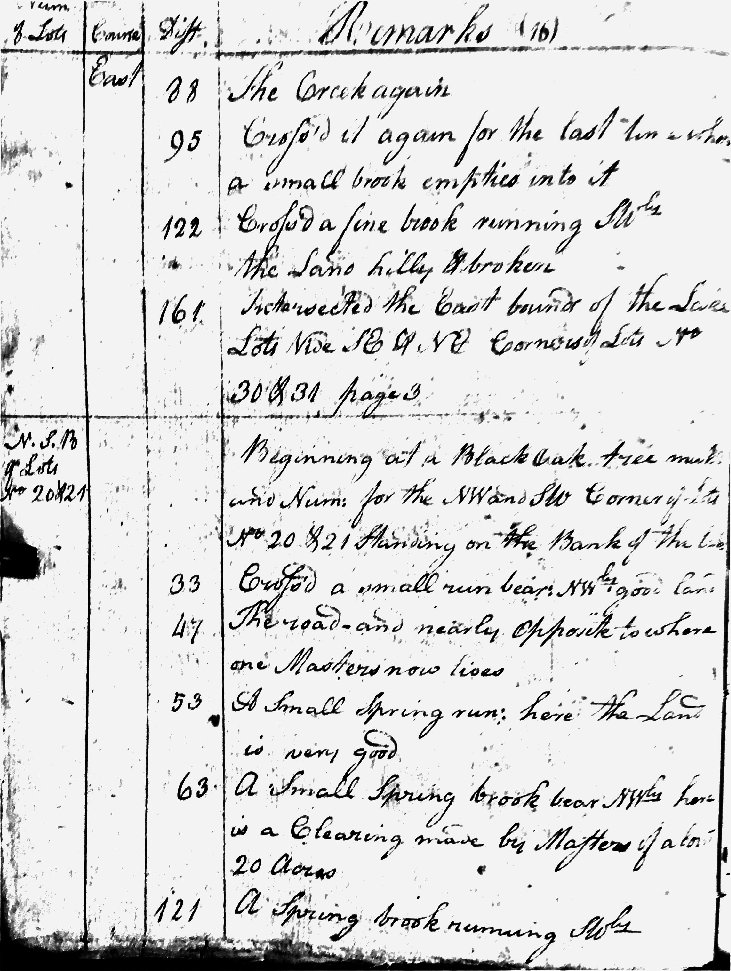 Num
of Lots Course Dist. Remarks (16)
East 88 The Creek again
95 Cross'd it again for the last time where
a small brook empties into it
122 Cross'd a fine brook running SWly
the Land hilly & broken
161 Intersected the East bounds of the
Lots Vide SE & NE Corners of Lots No
30 & 31 page 3
N. S. B Beginning at a Black Oak tree mark
of Lots and Num: for the NW and SW Corner of Lots
No 20 & 21 No 20 & 21 Standing on the Bank of the
33 Cross'd a small run bears NWly good land
47 The road and nearly opposite to where
one Masters now lives
53 A Small Spring run; here the Land
is very good
63 A Small Spring brook bear NWly here
is a Clearing made by Masters of about
20 Acres
121 A Spring brook running SWly